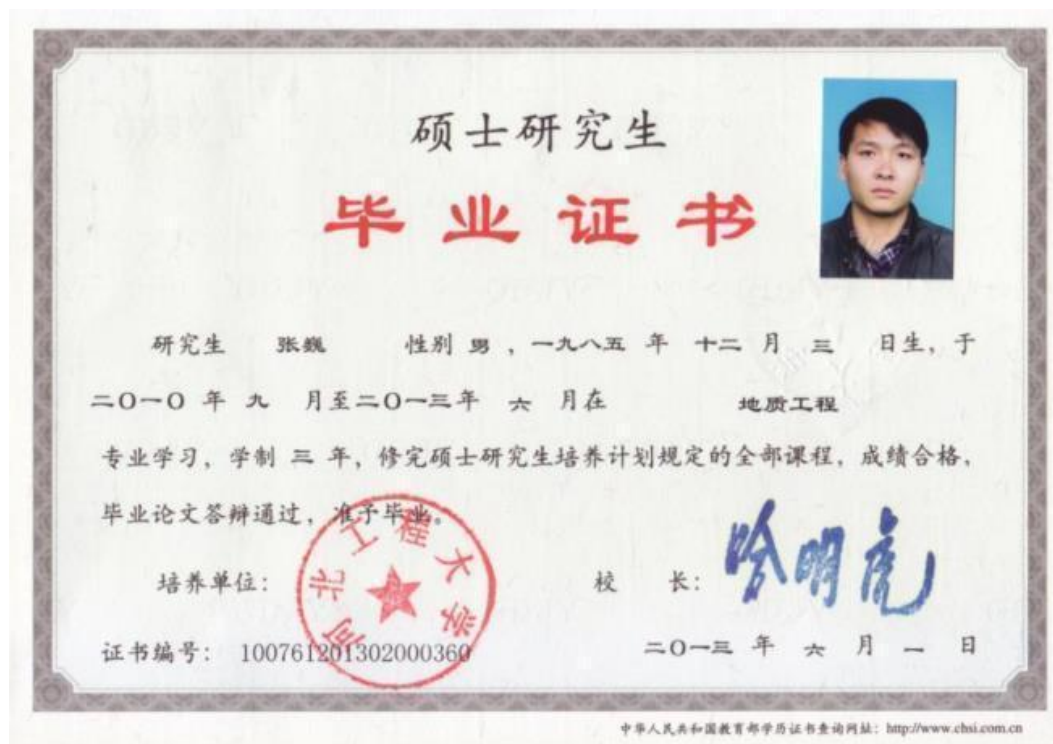 硕士研究生
毕业证书
研究生 张巍 性别 男 ，一九八五 年 十二 月 三 日生，于
二〇一〇 年 九 月至二〇一三年 六 月在 地质工程
专业学习，学制 三 年，修完硕士研究生培养计划规定的全部课程，成绩合格，
毕业论文答辩通过，准予毕业。
河北工程大学
培养单位： 校 长： 哈明虎
证书编号： 100761201302000360 二〇一三 年 六 月 一 日
中华人民共和国教育部学历证书查询网址：http://www.chsi.com.cn